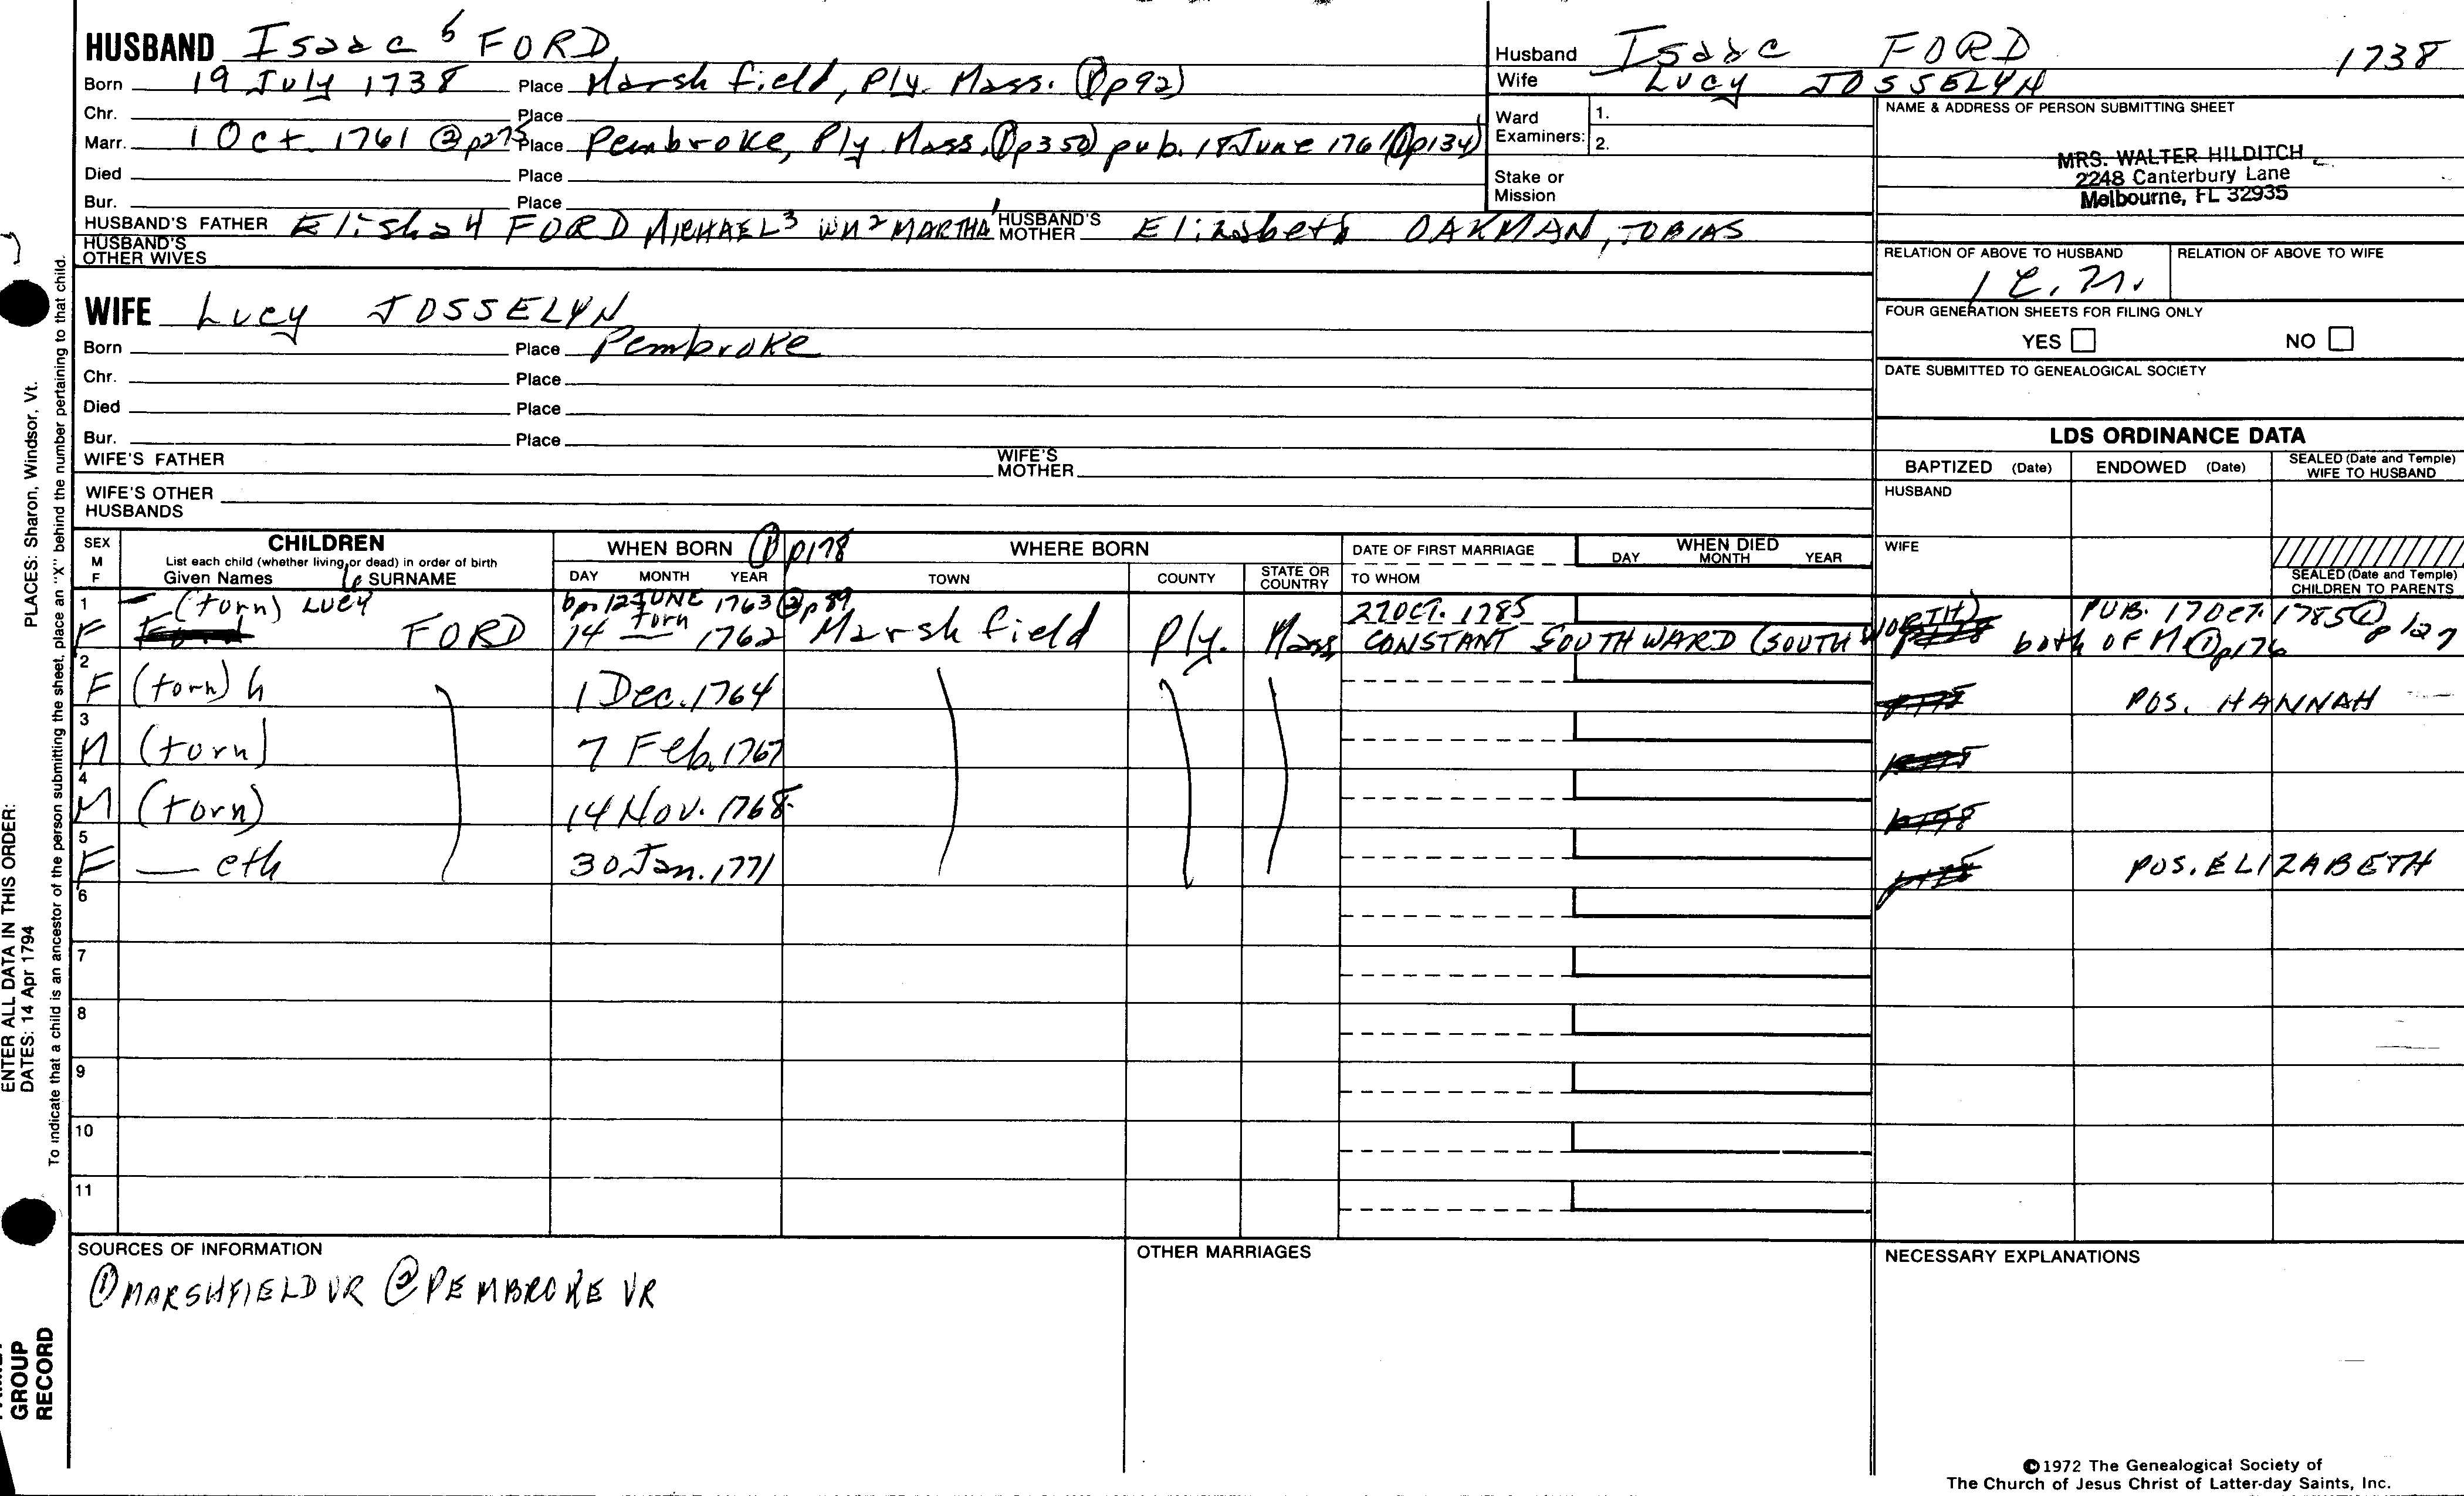 HUSBAND Isaac 5 FORD
Born 19 July 1738 Place Marshfield, Ply. Mass. (1) p92)
Chr. Place
Marr. 1 Oct. 1761 (2) p275 Place Pembroke, Ply. Mass. (1) p350) pub. 18 June 1761 (1) p134)
Died Place
Bur. Place
HUSBAND'S FATHER Elisha 4 FORD MICHAEL 3 WM 2 MARTHA 1 HUSBAND'S MOTHER Elizabeth OAKMAN, TOBIAS
HUSBAND'S OTHER WIVES
Husband Isaac FORD 1738
Wife Lucy JOSSELYN
Ward Examiners: 1.
2.
Stake or Mission
NAME & ADDRESS OF PERSON SUBMITTING SHEET
MRS. WALTER HILDITCH
2248 Canterbury Lane
Melbourne, FL 32935
RELATION OF ABOVE TO HUSBAND RELATION OF ABOVE TO WIFE
FOUR GENERATION SHEETS FOR FILING ONLY
YES NO
DATE SUBMITTED TO GENEALOGICAL SOCIETY
WIFE Lucy JOSSELYN
Born Place Pembroke
Chr. Place
Died Place
Bur. Place
WIFE'S FATHER WIFE'S MOTHER
WIFE'S OTHER HUSBANDS
LDS ORDINANCE DATA
BAPTIZED (Date) ENDOWED (Date) SEALED (Date and Temple) WIFE TO HUSBAND
HUSBAND
WIFE
SEALED (Date and Temple) CHILDREN TO PARENTS
SEX M F CHILDREN WHEN BORN (1) p178 WHERE BORN DATE OF FIRST MARRIAGE WHEN DIED
List each child (whether living or dead) in order of birth
Given Names 6 SURNAME DAY MONTH YEAR TOWN COUNTY STATE OR COUNTRY TO WHOM DAY MONTH YEAR
1 (torn) LUCY bp. 12 JUNE 1763 (2) p89 27 OCT. 1785 PUB. 17 OCT. 1785 (1) p127
F Ford FORD 14 torn 1762 Marshfield Ply. Mass CONSTANT SOUTHWARD (SOUTHWORTH) both OF M (1) p176
2 F (torn) h 1 Dec. 1764 POS. HANNAH
3 M (torn) 7 Feb. 1767
4 M (torn) 14 Nov. 1768
5 F — eth 30 Jan. 1771 POS. ELIZABETH
6
7
8
9
10
11
SOURCES OF INFORMATION
(1) MARSHFIELD VR (2) PEMBROKE VR
OTHER MARRIAGES
NECESSARY EXPLANATIONS
©1972 The Genealogical Society of
The Church of Jesus Christ of Latter-day Saints, Inc.
PLACES: Sharon, Windsor, Vt.
ENTER ALL DATA IN THIS ORDER:
DATES: 14 Apr 1794
To indicate that a child is an ancestor of the person submitting the sheet, place an "X" behind the number pertaining to that child.
GROUP
RECORD